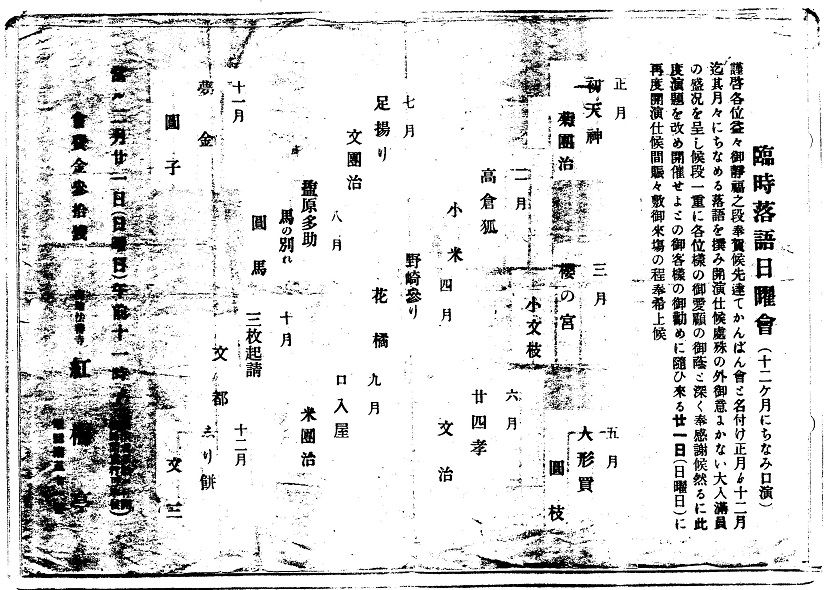 臨時落語日曜會(十二ケ月にちなみ口演)
謹啓各位益々御靜福之段奉賀候先達てかんばん會と名付け正月より十二月
迄其月々にちなめる落語を撰み開演仕候處殊の外御意にかない大入滿員
の盛况を呈し候段一重に各位樣の御愛顧の御蔭と深く奉感謝候然るに此
度演題を改め開催せよとの御客樣の御勸めに隨ひ來る廿一日(日曜日)に
再度開演仕候間賑々敷御來塲の程奉希上候
正月
初天神
菊團治
二月
高倉狐
小米
三月
櫻の宮
小文枝
四月
野崎參り
花橘
五月
人形買
圓枝
六月
廿四孝
文治
七月
足揚り
文團治
八月
鹽原多助
馬の別れ
圓馬
九月
口入屋
米團治
十月
三枚起請
文都
十一月
夢金
圓子
十二月
ゑり餅
文三
月廿一日(日曜日)午前十一時
會費金參拾錢
法善寺
紅梅亭